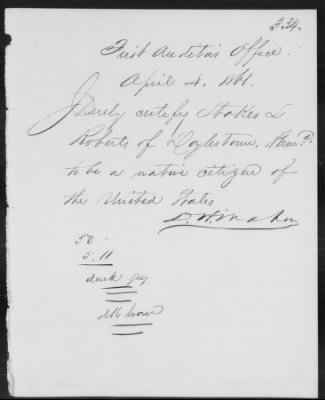 334.
First Auditor's Office.
April 4. 1861.
I hereby certify Stokes L.
Roberts of Doylestown, Penn.
to be a native citizen of
the United States
50
5.11
dark grey
dk brown